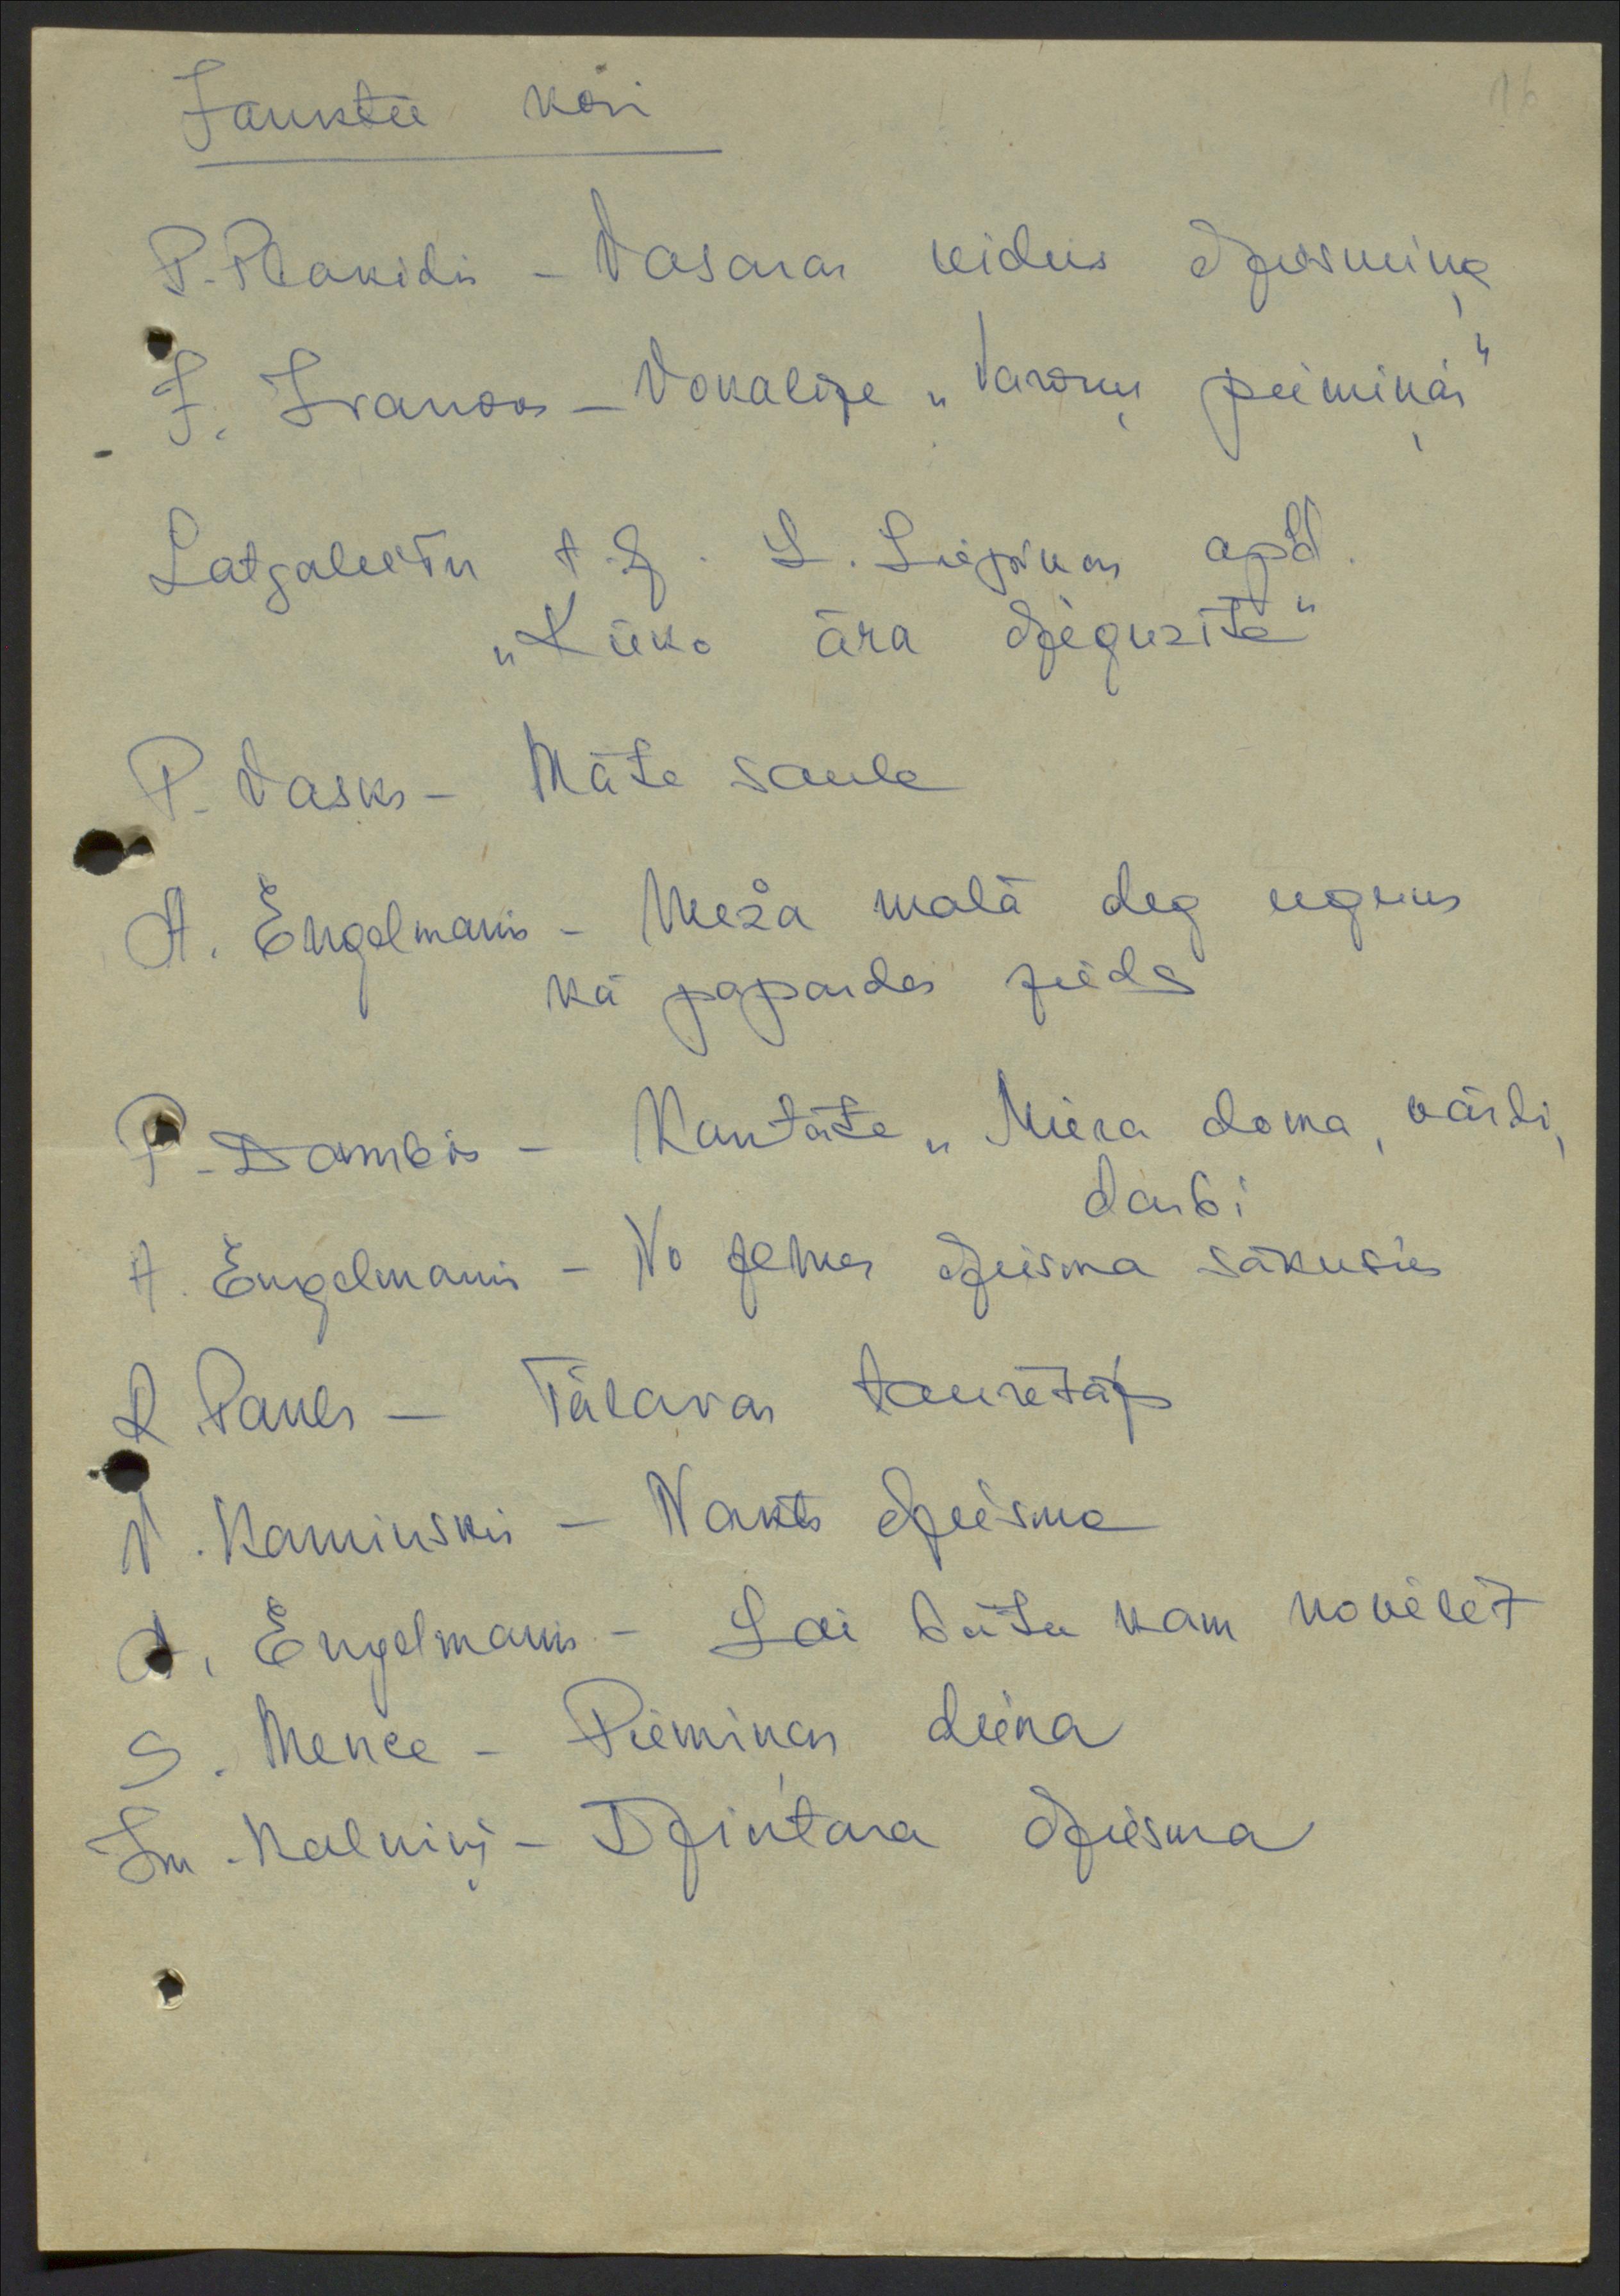 16
Jauktie kori
P. Plakidis - Vasaras vidus dziesmiņa
J. Ivanovs - Vokalīze „Varoņu piemiņai"
Latgaliešu t.dz. L. Liepiņas apd.
„Kūko āra dzeguzīte"
P. Vasks - Māte saule
A. Engelmanis - Meža malā deg uguns
kā papardes zieds
P. Dambis - Kantāte „Miera doma, vārdi,
darbi
A. Engelmanis - No zemes dziesma sākusies
R. Pauls - Tālavas taurētājs
N. Kaminskis - Nakts dziesma
A. Engelmanis - Lai būtu kam novēlēt
S. Mence - Piemiņas diena
Im. Kalniņš - Dzintara dziesma